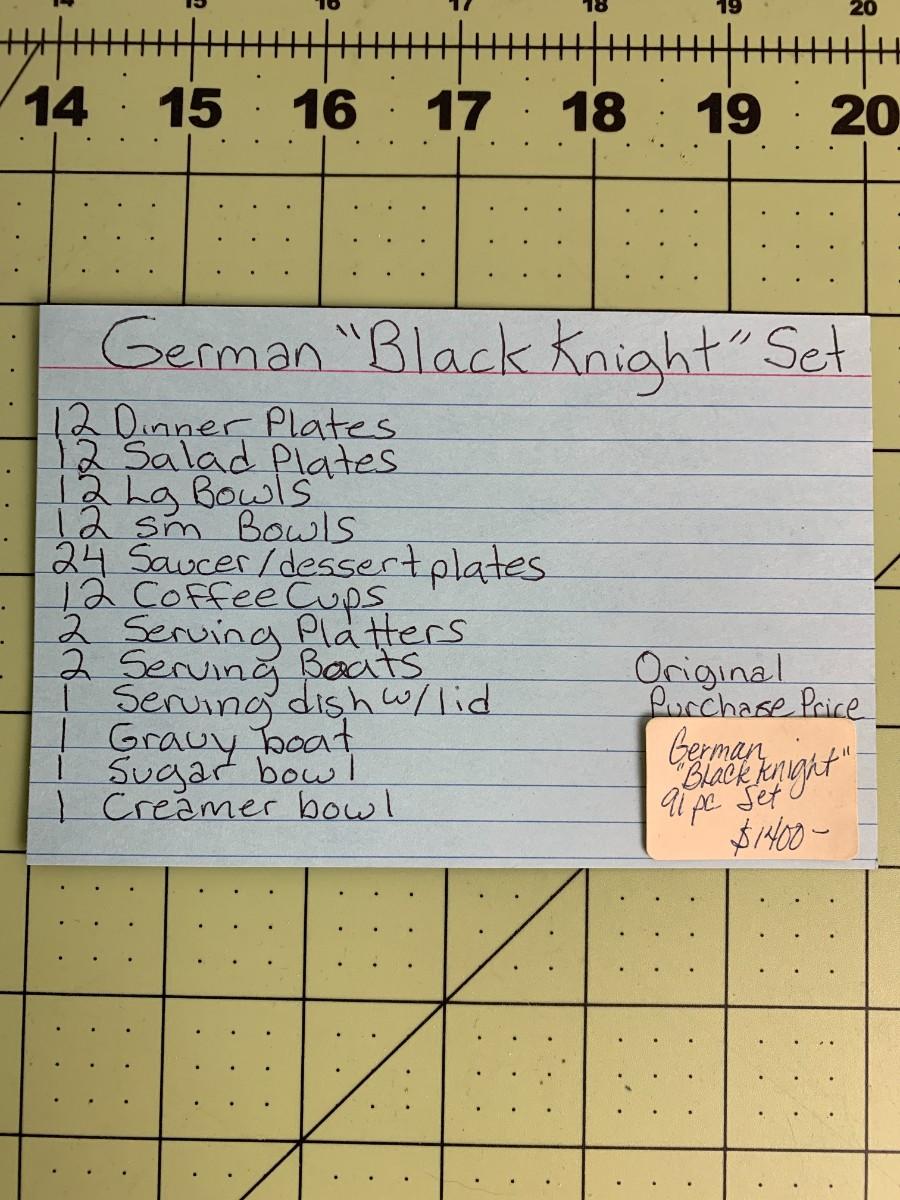 14 15 16 17 18 19 20
14 15 16 17 18 19 20
German "Black Knight" Set
12 Dinner Plates
12 Salad Plates
12 Lg Bowls
12 sm Bowls
24 Saucer/dessert plates
12 Coffee Cups
2 Serving Platters
2 Serving Boats
1 Serving dish w/lid
1 Gravy boat
1 Sugar bowl
1 Creamer bowl
Original
Purchase Price
German
"Black Knight"
91 pc Set
$1400-